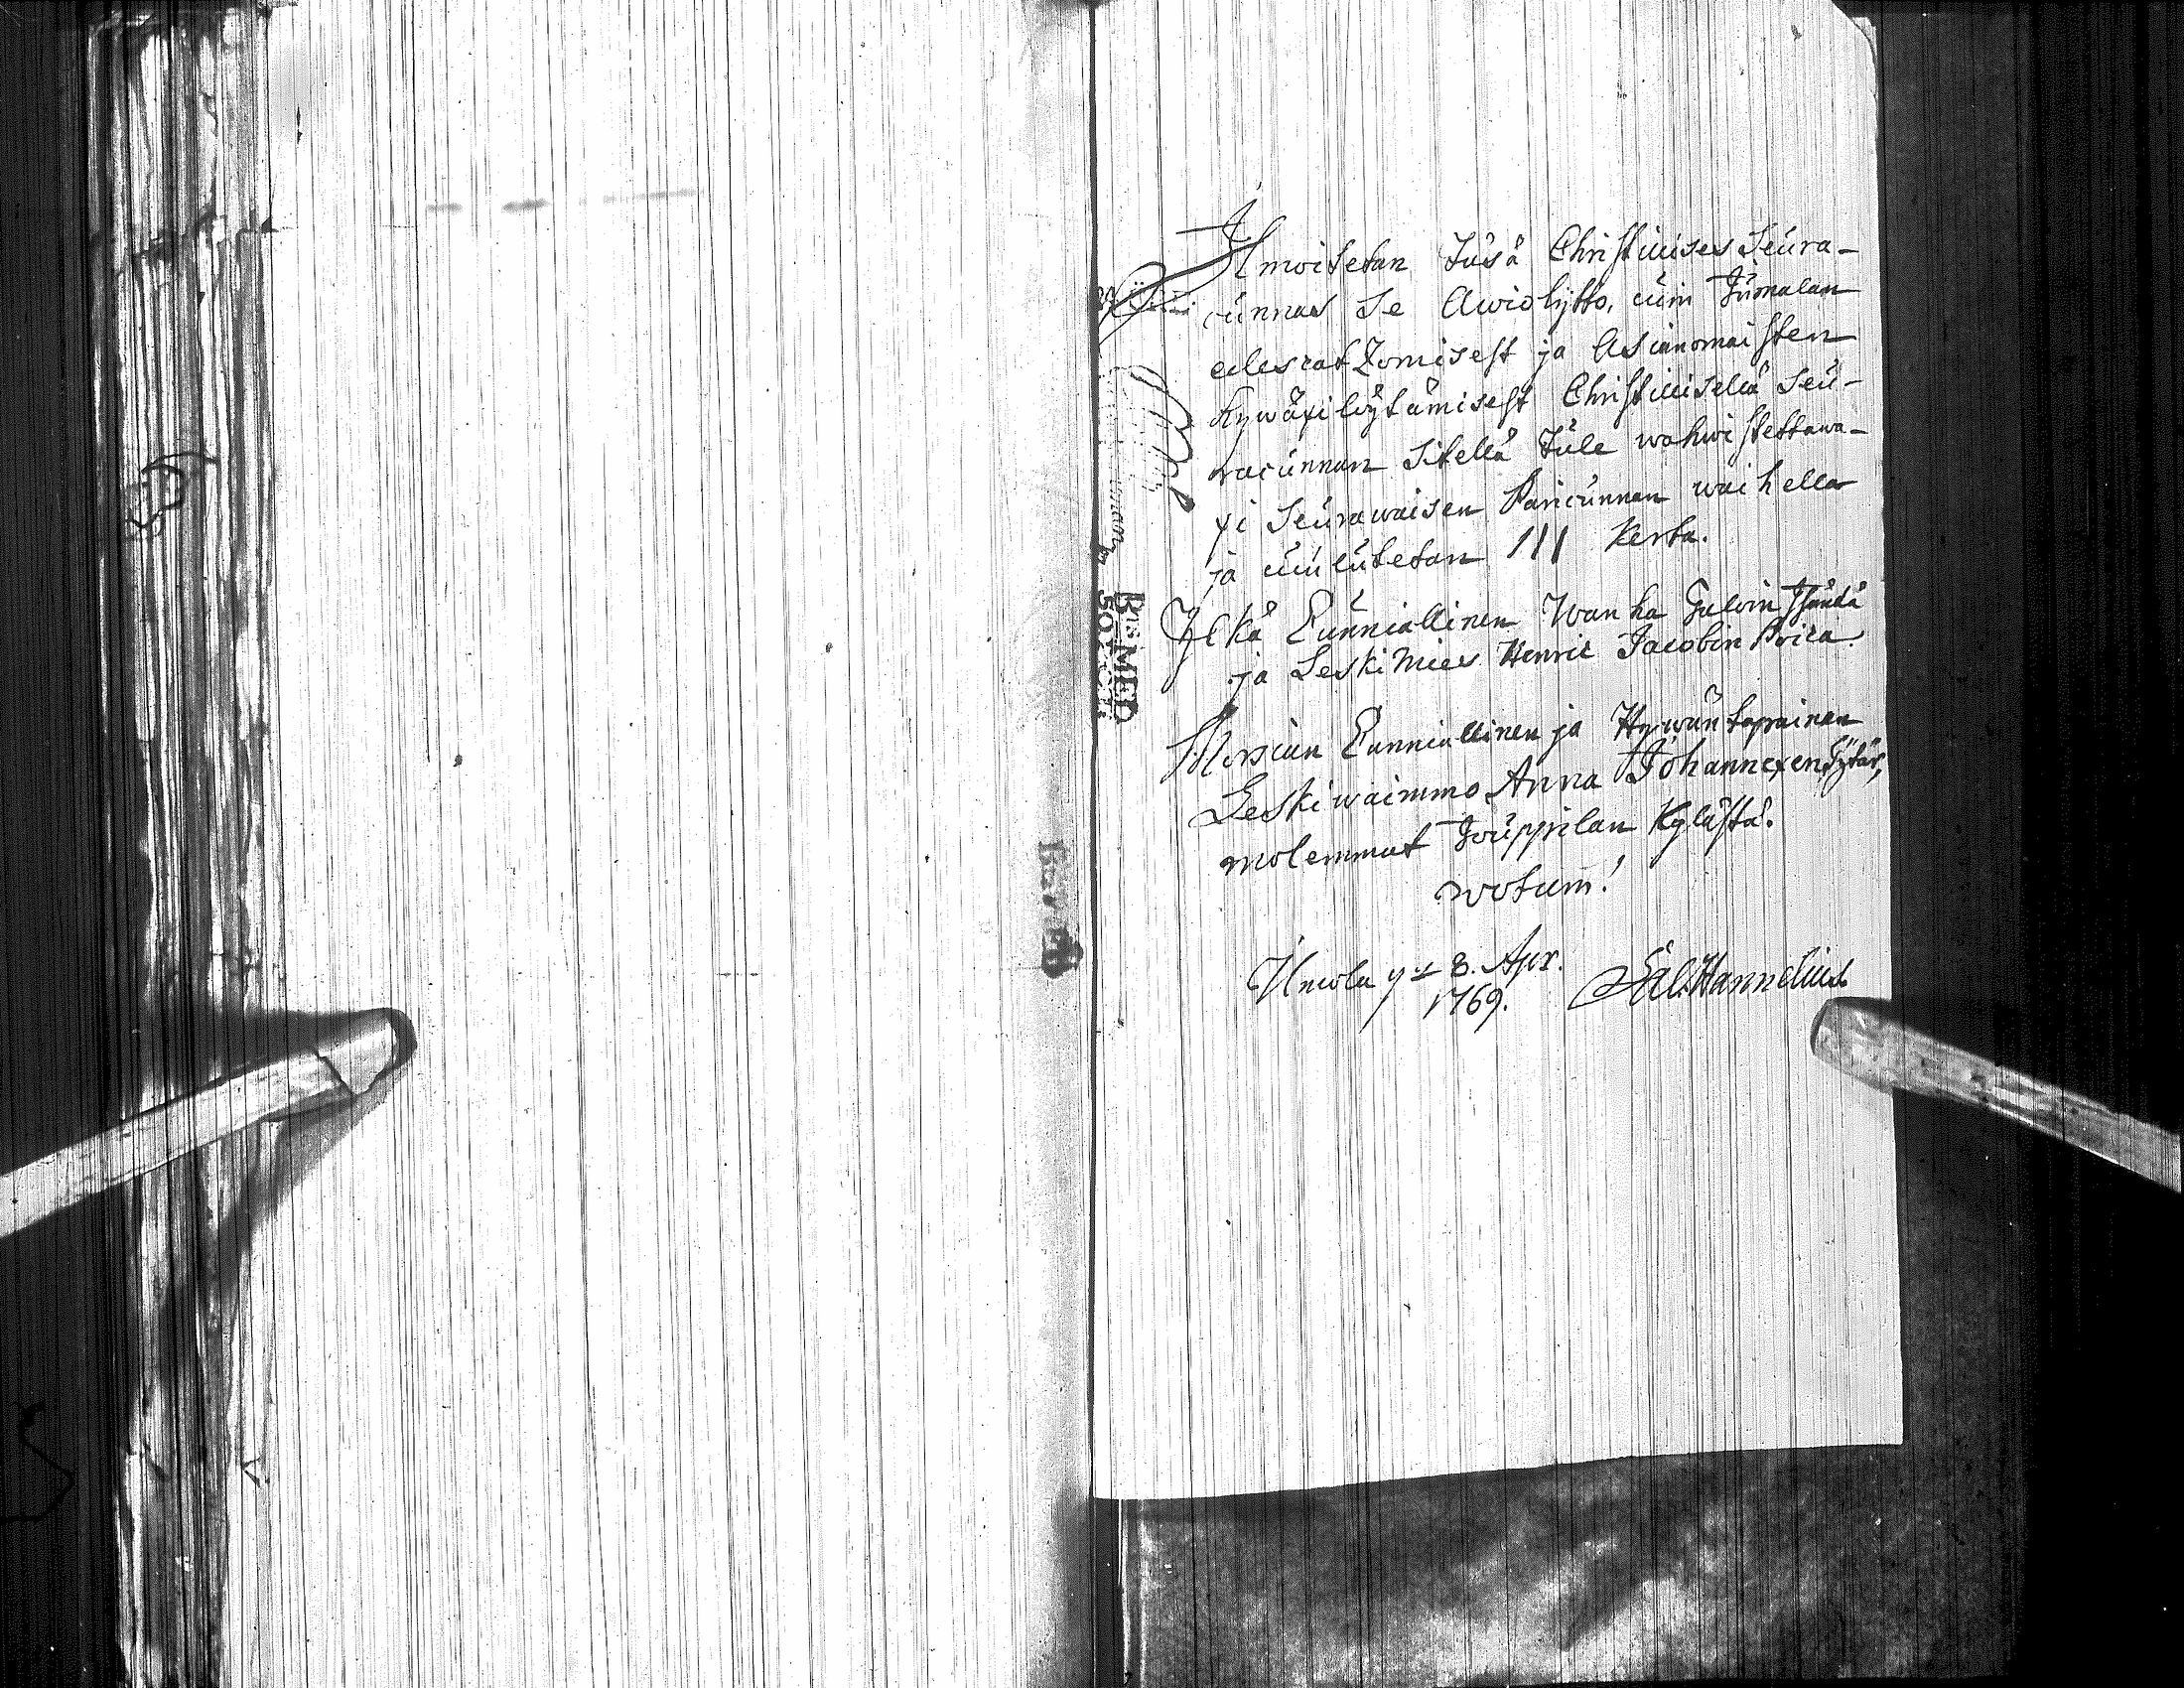 Ilmoitetan täsä Christilises Seura-
cunnas se Awioliitto, cuin Jumalan
edescatzomisest ja Asianomaisten
hywäxilöytämisest Christilisellä Seu-
racunnan sitellä tule wahwistettawa-
xi Seurawaisen Pariscunnan waihella
ja cuulutetan III Kerta.
Yljkä Cunniallinen Wanha Talon Isändä
ja Leski Mies Henric Jacobin Poica.
Morsian Cunniallinen ja Hywäntapainen
Leskiwaimmo Anna Johannexen Tytär,
molemmat Jouppilan Kylästä.
notum!
Uncola 8. Apr.
1769. Sal. Hannelius
BIS MED